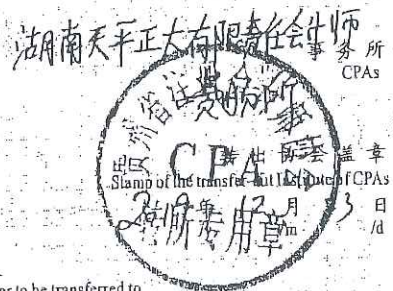 湖南天平正大有限责任会计师
事务所
CPAs
贵州省注
CPA
转出协会盖章
Stamp of the transfer-out Institute of CPAs
年 12 月 3 日
/m /d
转所专用章
to be transferred to